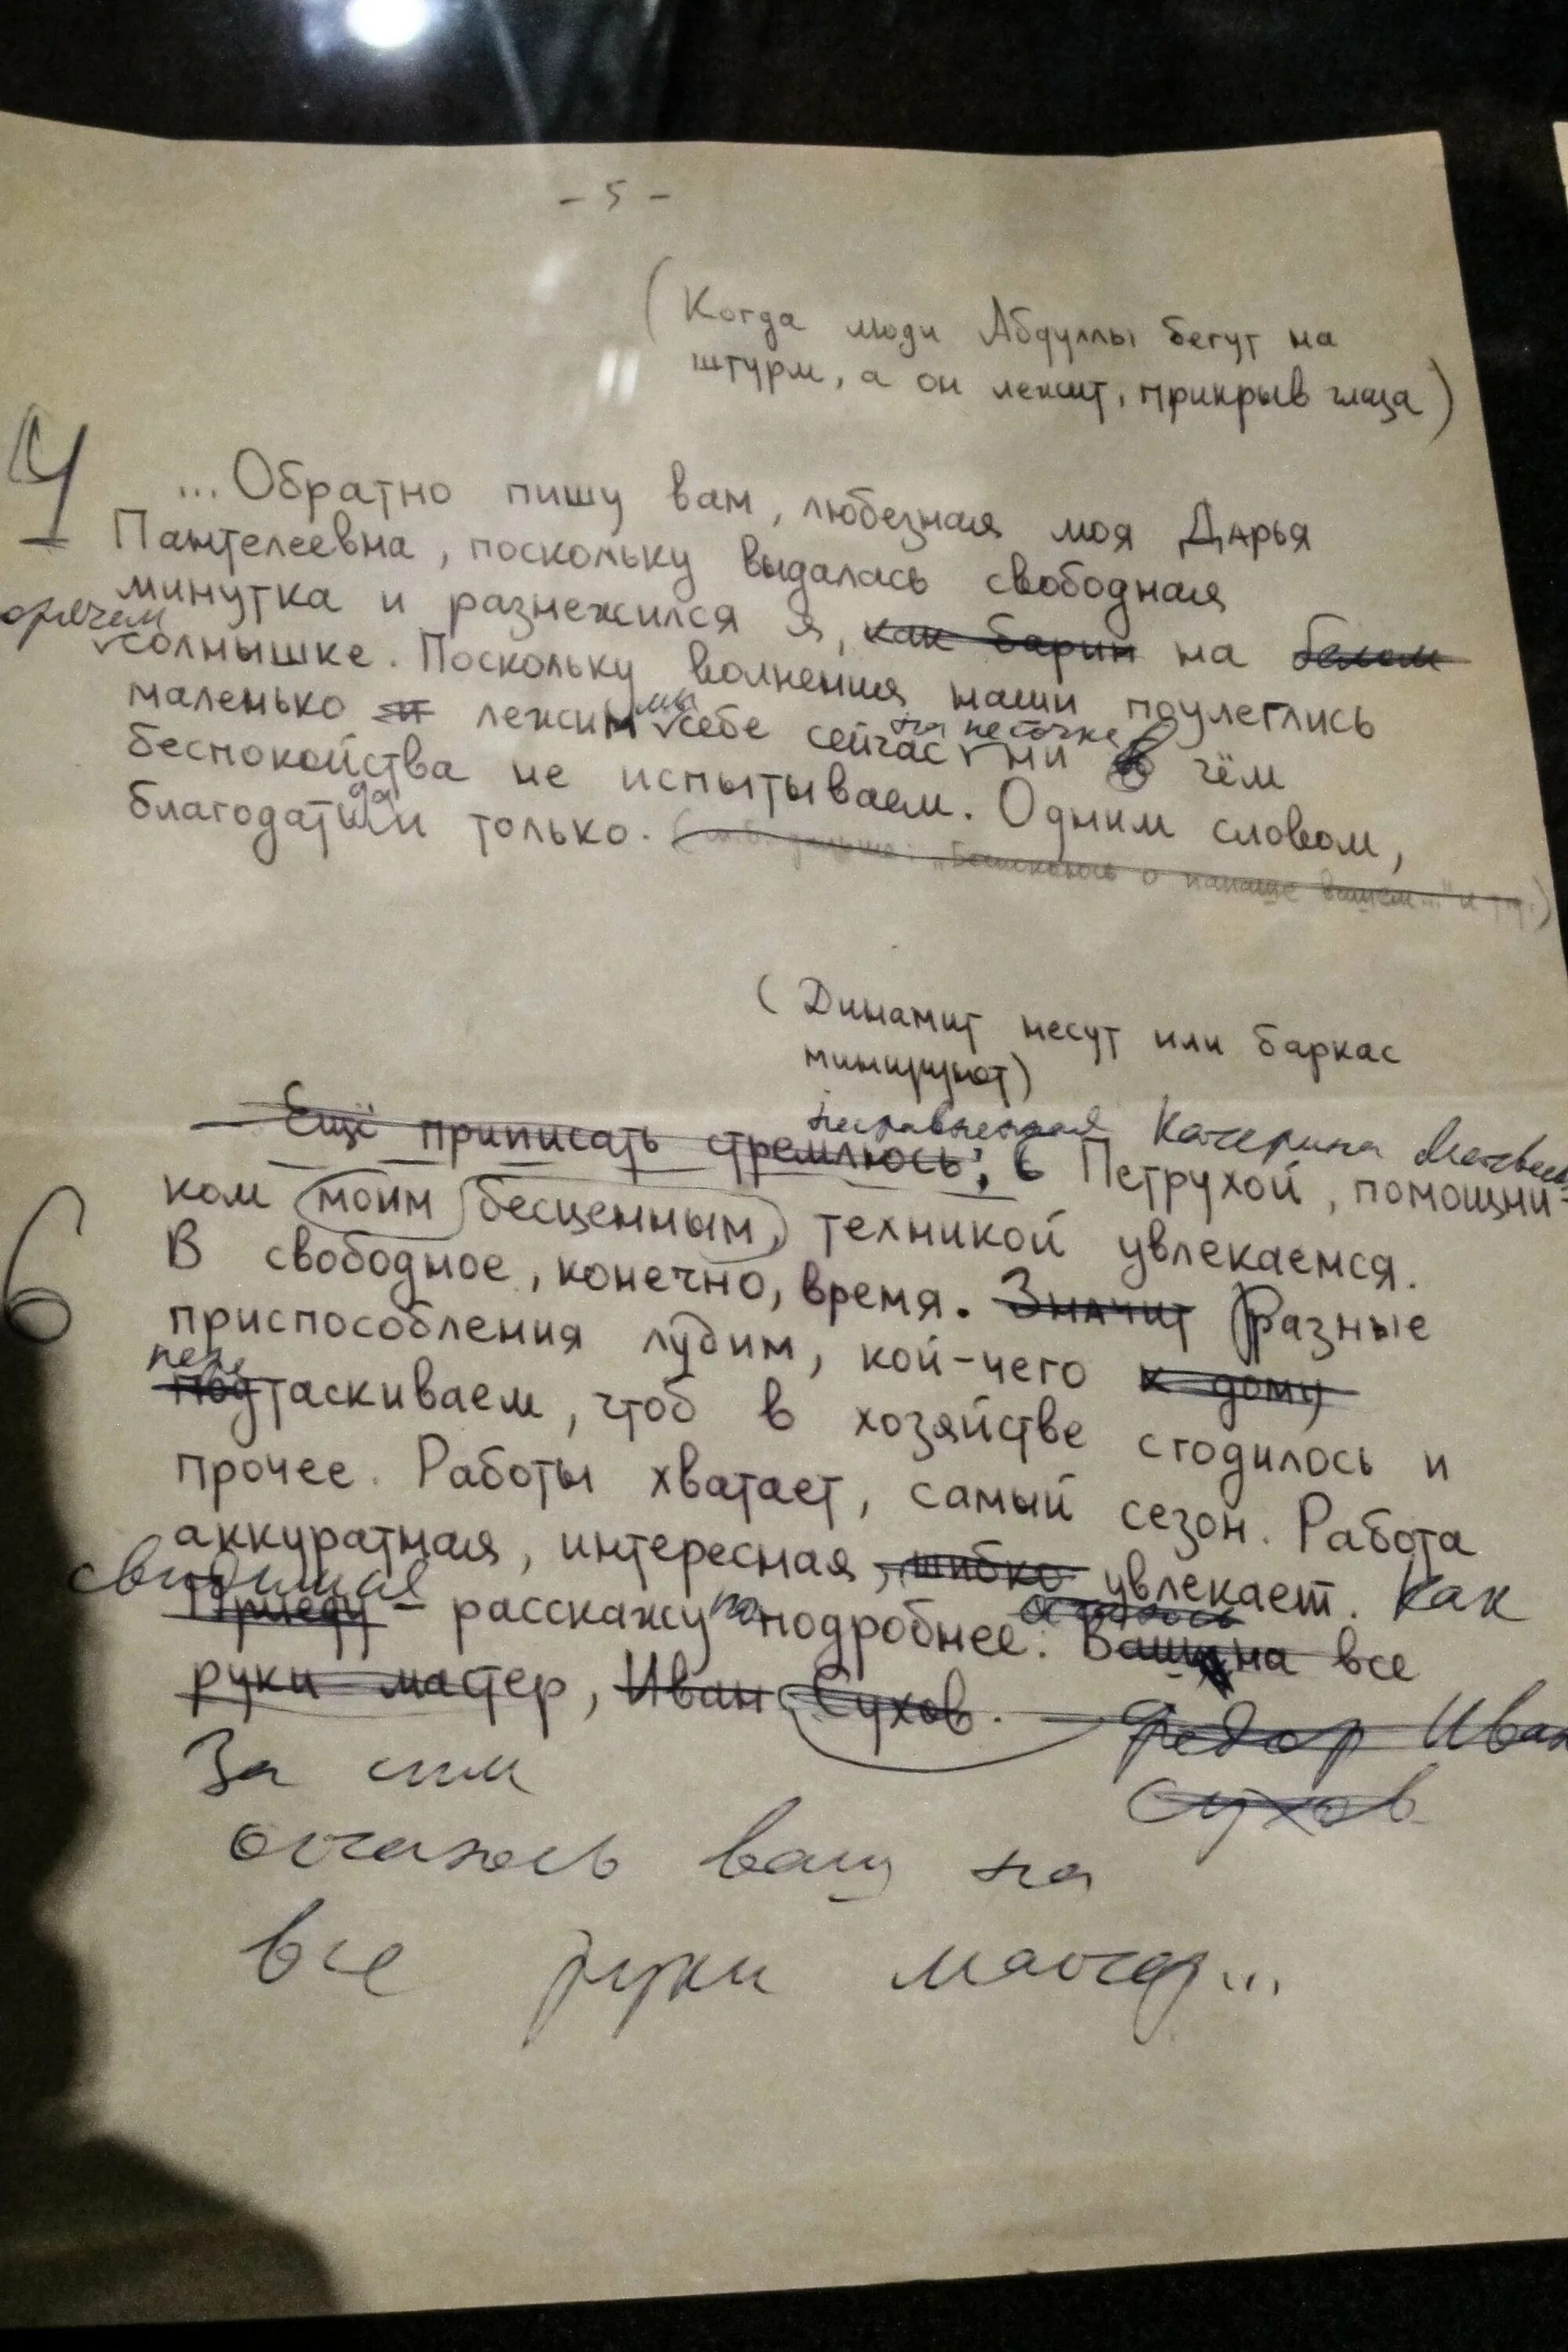 - 5 -
(Когда люди Абдуллы бегут на
штурм, а он лежит, прикрыв глаза)
4
...Обратно пишу вам, любезная моя Дарья
Пантелеевна, поскольку выдалась свободная
минутка и разнежился я, как барин на белом
горячем
солнышке. Поскольку волнения наши поулеглись
мы
на песочке
маленько и лежим себе сейчас ни в чём
беспокойства не испытываем. Одним словом,
да
благодати и только. (м.б. дальше: „Беспокоюсь о папаше вашем..." и т.д.)
(Динамит несут или баркас
минируют)
несравненная Катерина Матвевна
Ещё приписать стремлюсь, с Петрухой, помощни-
6
ком моим бесценным, техникой увлекаемся.
В свободное, конечно, время. Значит Разные
приспособления лудим, кой-чего к дому
пере
подтаскиваем, чтоб в хозяйстве сгодилось и
прочее. Работы хватает, самый сезон. Работа
аккуратная, интересная, шибко увлекает. Как
свидимся
Приеду - расскажу поподробнее. Ваш на все
остаюсь
руки мастер, Иван Сухов.
Федор Иван
Сухов
За сим
остаюсь ваш на
все руки мастер...